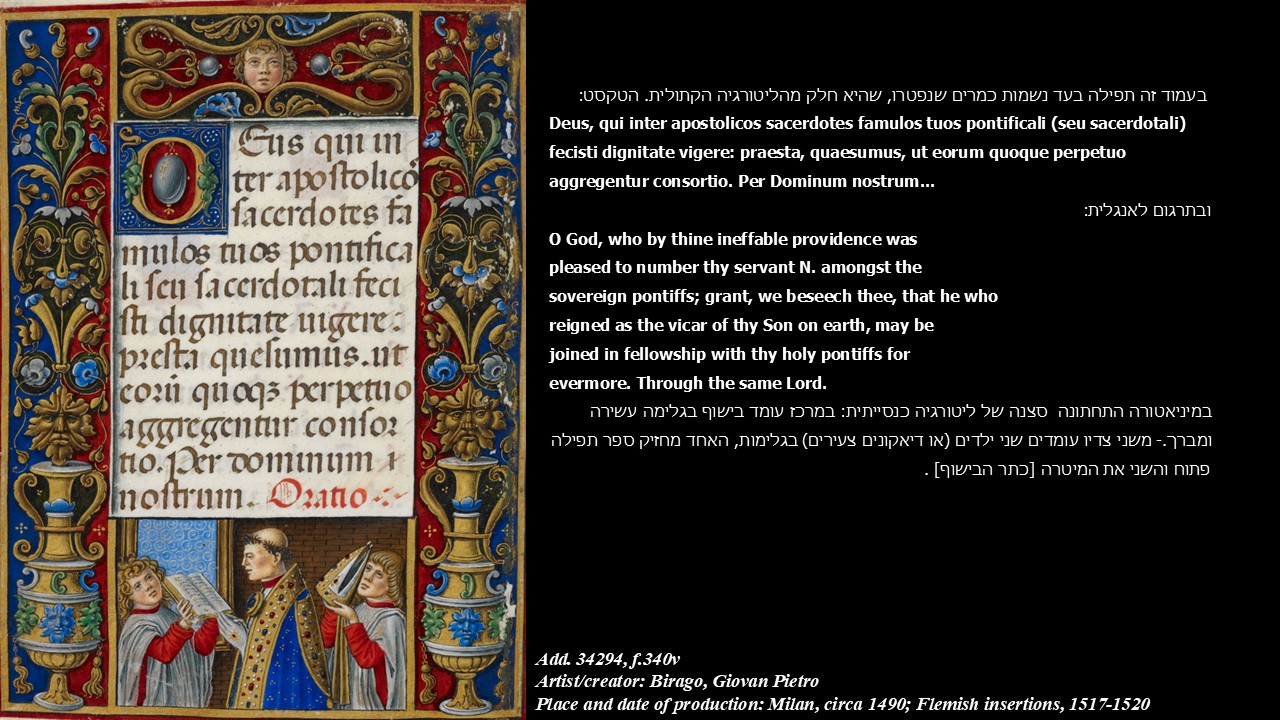 Eus qui in
ter apostolicõ
sacerdotes fa
mulos tuos pontifica
li seu sacerdotali feci
sti dignitate uigere:
presta quesumus. ut
eorũ quoqꝫ perpetuo
aggregentur consor
tio. Per dominum i
nostrum. Oratio
בעמוד זה תפילה בעד נשמות כמרים שנפטרו, שהיא חלק מהליטורגיה הקתולית. הטקסט:
Deus, qui inter apostolicos sacerdotes famulos tuos pontificali (seu sacerdotali)
fecisti dignitate vigere: praesta, quaesumus, ut eorum quoque perpetuo
aggregentur consortio. Per Dominum nostrum...
ובתרגום לאנגלית:
O God, who by thine ineffable providence was
pleased to number thy servant N. amongst the
sovereign pontiffs; grant, we beseech thee, that he who
reigned as the vicar of thy Son on earth, may be
joined in fellowship with thy holy pontiffs for
evermore. Through the same Lord.
במיניאטורה התחתונה סצנה של ליטורגיה כנסייתית: במרכז עומד בישוף בגלימה עשירה
ומברך.- משני צדיו עומדים שני ילדים (או דיאקונים צעירים) בגלימות, האחד מחזיק ספר תפילה
פתוח והשני את המיטרה [כתר הבישוף] .
Add. 34294, f.340v
Artist/creator: Birago, Giovan Pietro
Place and date of production: Milan, circa 1490; Flemish insertions, 1517-1520